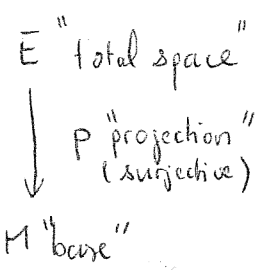 E "total space"
P "projection"
(surjective)
M "base"